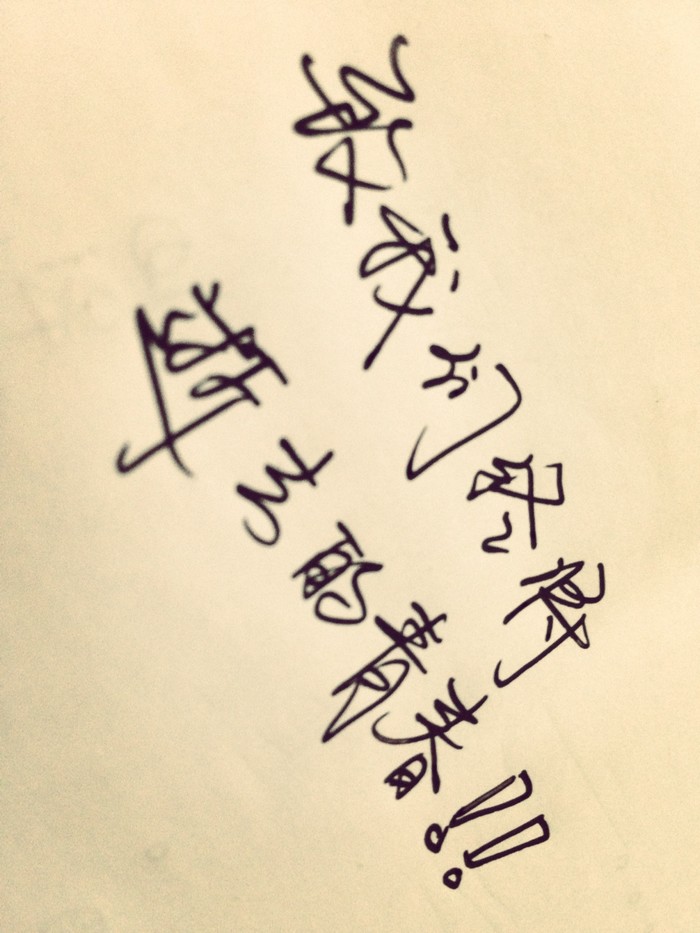 致我们终将
逝去的青春!!